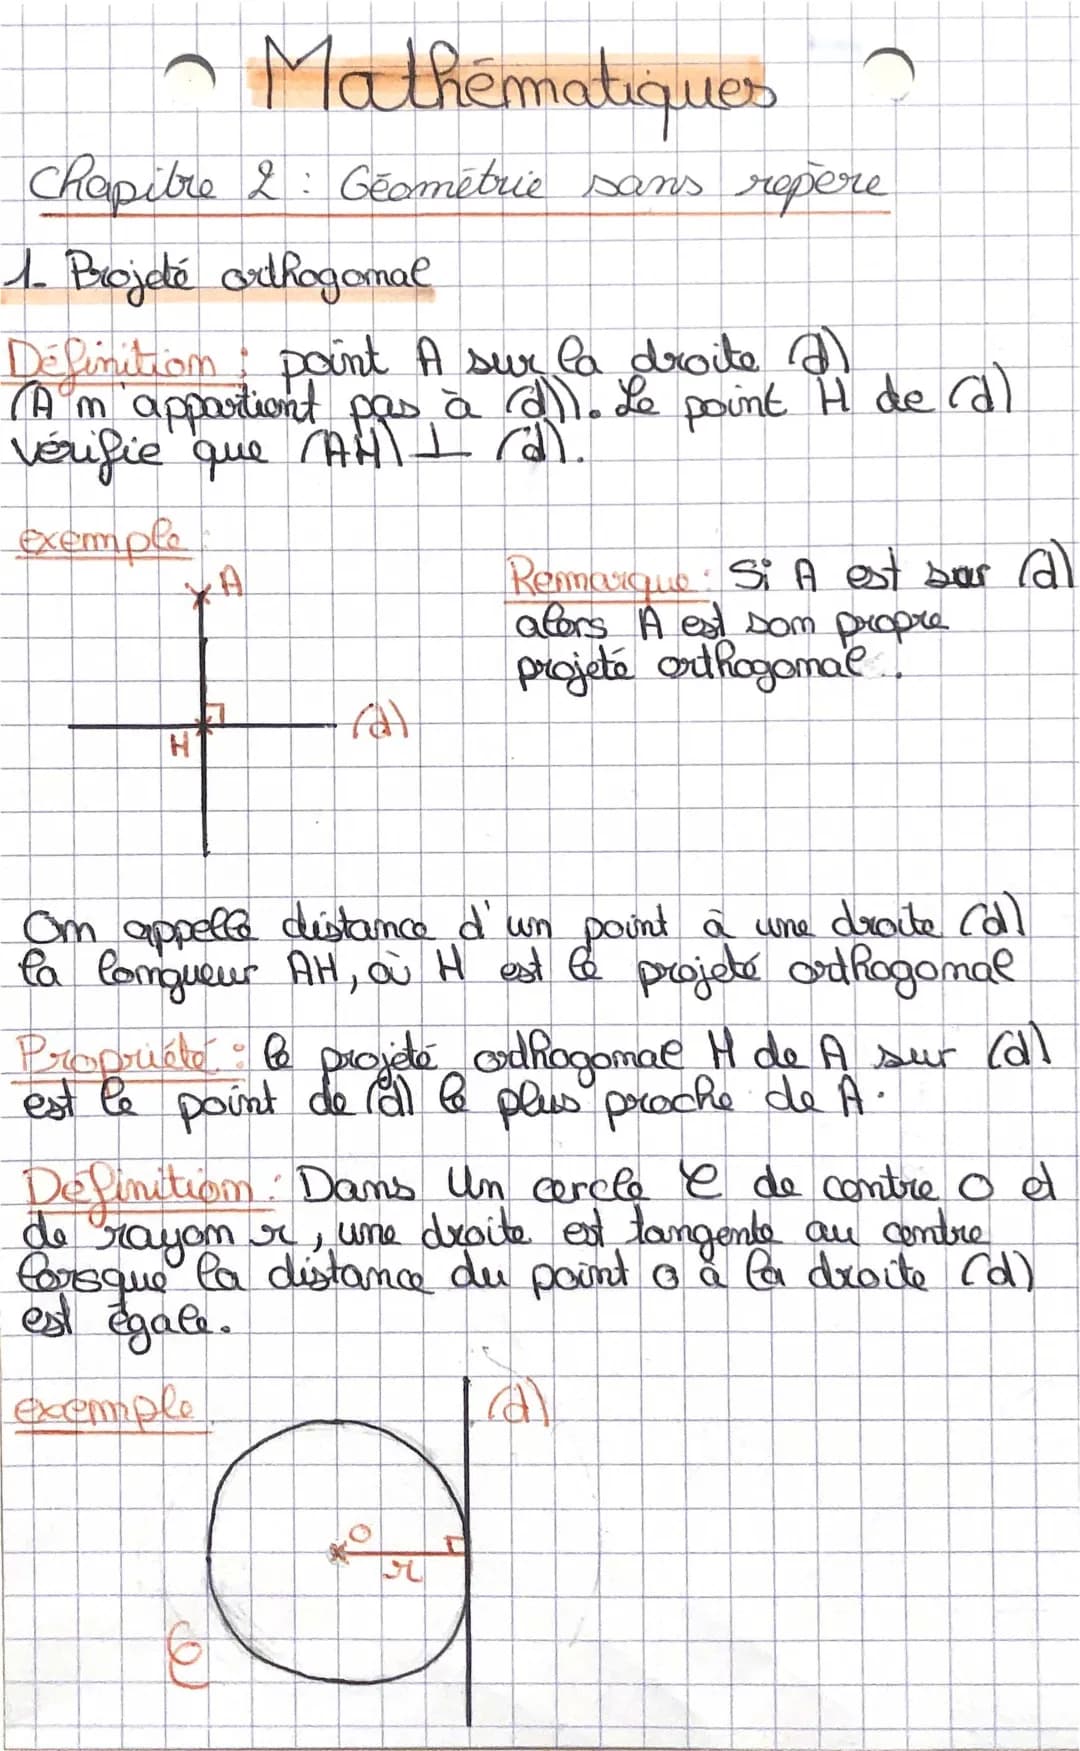 Mathématiques
Chapitre 2 : Géométrie sans repère
1- Projeté orthogonal
Définition : point A sur la droite (d)
(A n'appartient pas à (d)). Le point H de (d)
vérifie que (AH) ⊥ (d).
exemple :
A
Remarque : Si A est sur (d)
alors A est son propre
projeté orthogonal.
(d)
H
On appelle distance d'un point à une droite (d)
la longueur AH, où H est le projeté orthogonal
Propriété : le projeté orthogonal H de A sur (d)
est le point de (d) le plus proche de A.
Définition : Dans un cercle C de centre O et
de rayon r, une droite est tangente au centre
lorsque la distance du point O à la droite (d)
est égale.
exemple
(d)
O
r
C